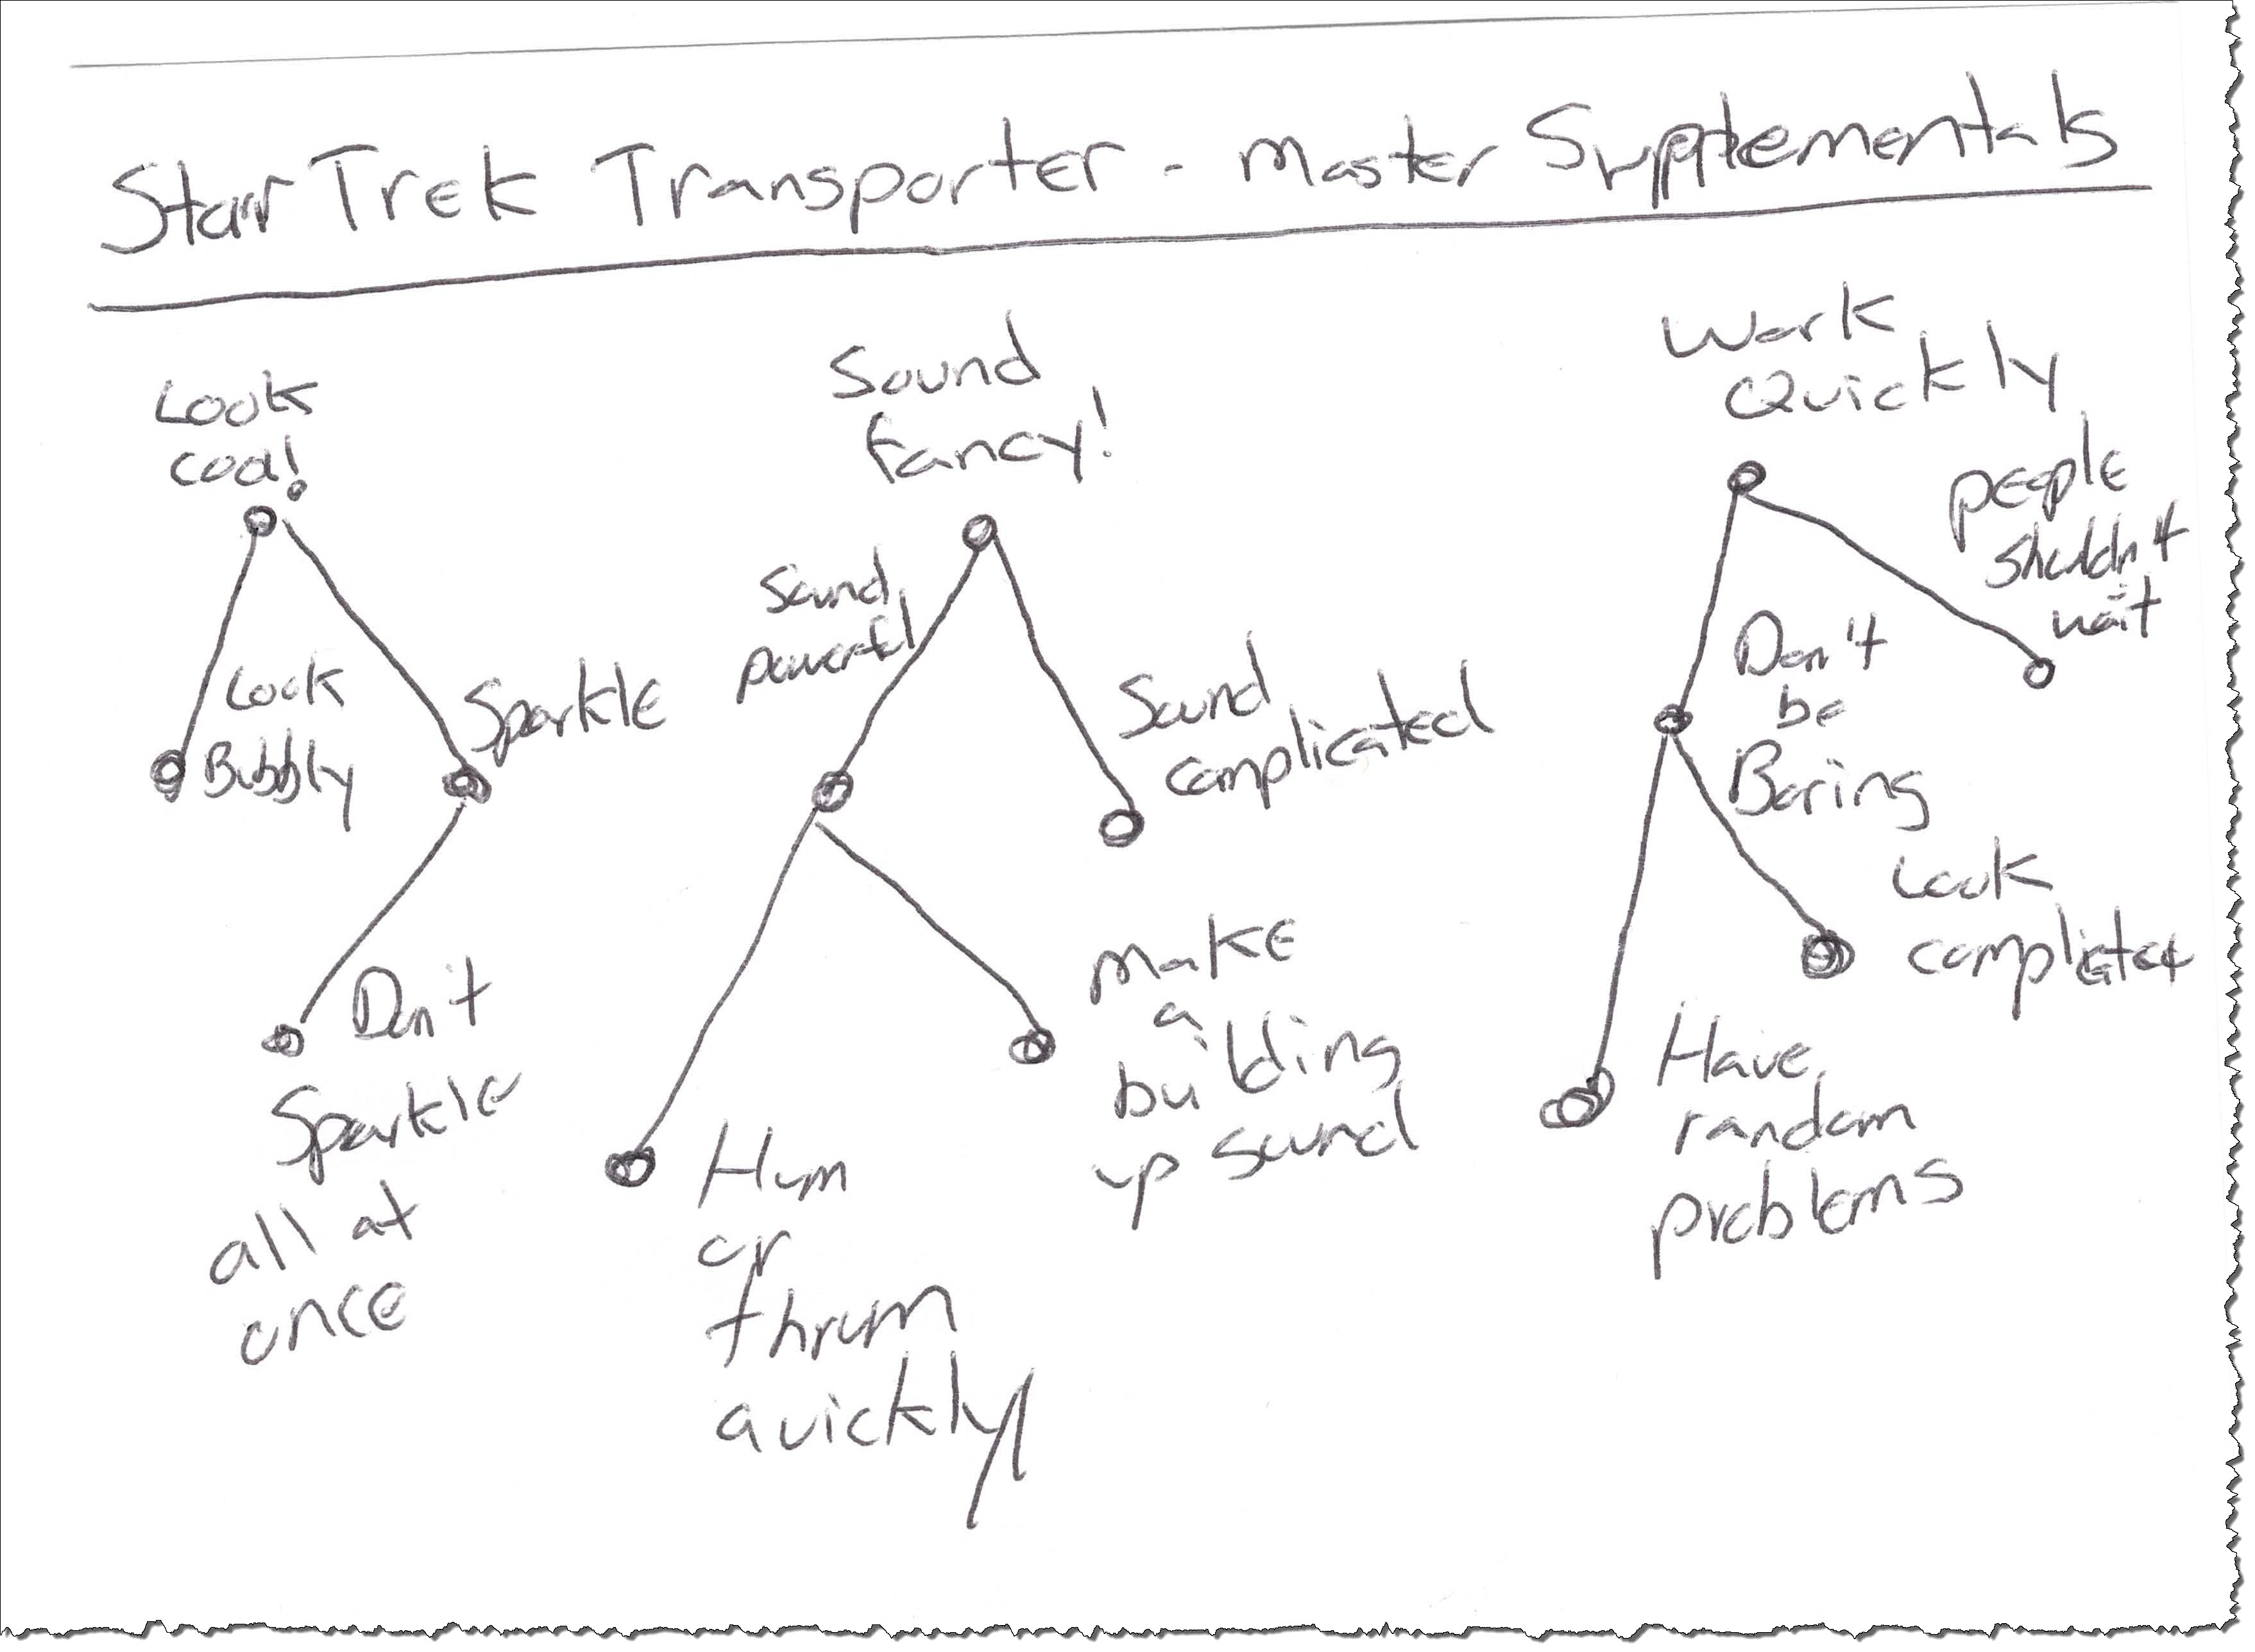 Star Trek Transporter - Master Supplementals
Look
cool!
Look
Bubbly
Sparkle
Don't
Sparkle
all at
once
Sound
fancy!
Sound
powerful
Sound
complicated
Hum
or
thrum
quickly
Make
a
building
up sound
Work
Quickly
people
shouldn't
wait
Don't
be
Boring
Look
Have
random
problems